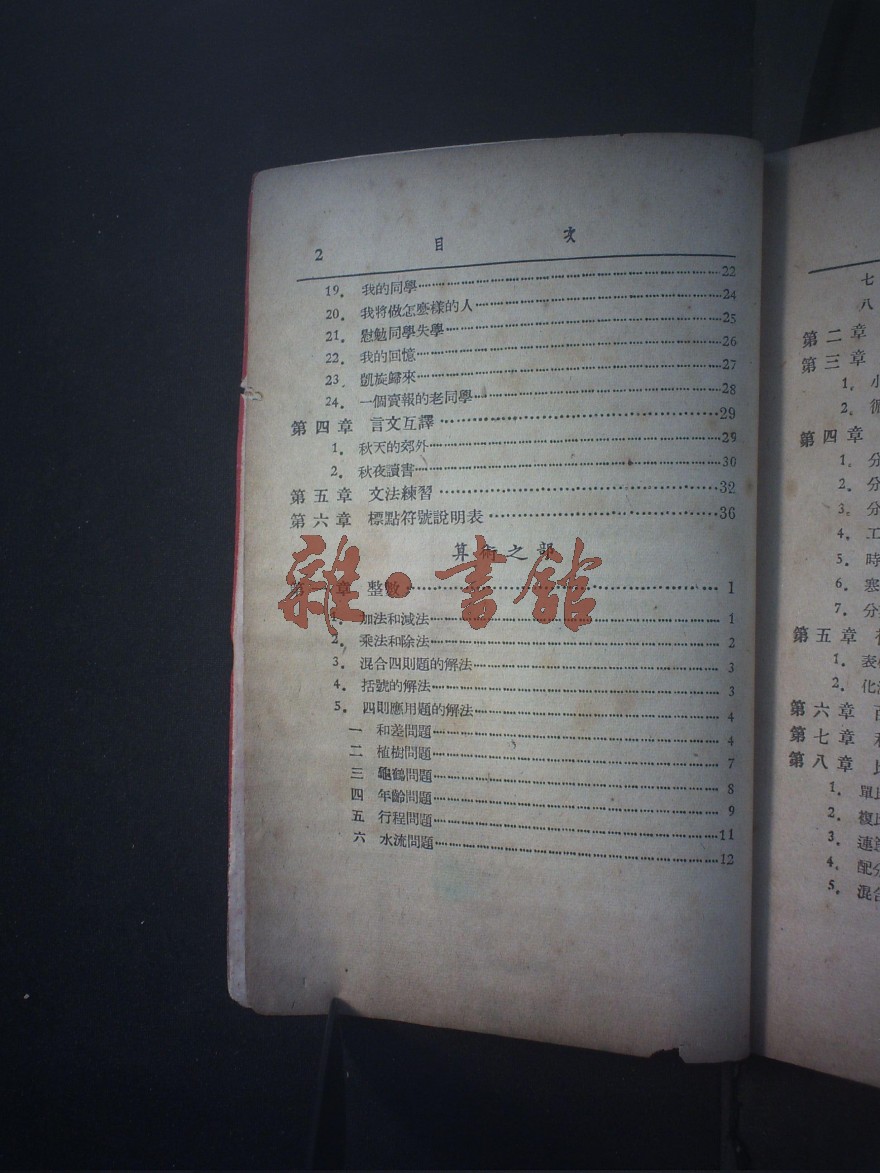 2 目次
19. 我的同學 22
20. 我將做怎麼樣的人 24
21. 慰勉同學失學 25
22. 我的回憶 26
23. 凱旋歸來 27
24. 一個賣報的老同學 28
第四章 言文互譯 29
1. 秋天的郊外 29
2. 秋夜讀書 30
第五章 文法練習 32
第六章 標點符號說明表 36
算術之部
第一章 整數 1
1. 加法和減法 1
2. 乘法和除法 2
3. 混合四則題的解法 3
4. 括號的解法 3
5. 四則應用題的解法 4
一 和差問題 4
二 植樹問題 7
三 龜鶴問題 8
四 年齡問題 9
五 行程問題 11
六 水流問題 12
雜·書館
七
八
第二章
第三章
1. 小
2. 循
第四章
1. 分
2. 分
3. 分
4. 工
5. 時
6. 寒
7. 分
第五章
1. 表
2. 化
第六章
第七章
第八章
1. 單
2. 複
3. 連
4. 配分
5. 混合